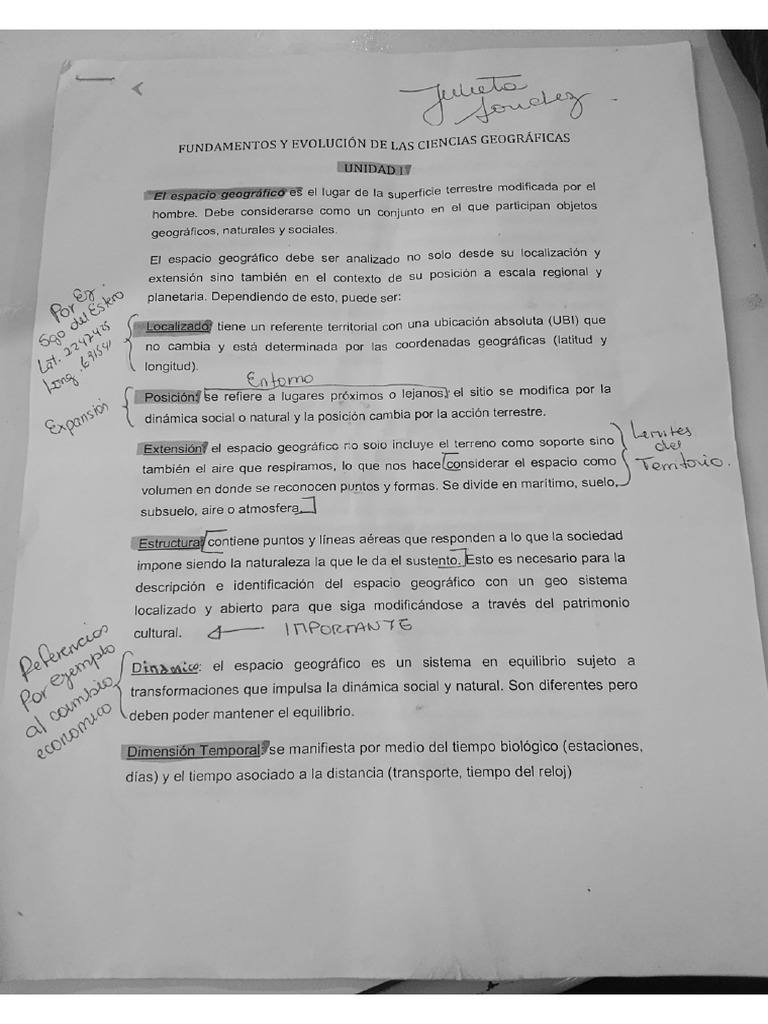 Julieta
Sanchez
FUNDAMENTOS Y EVOLUCIÓN DE LAS CIENCIAS GEOGRÁFICAS
UNIDAD I
El espacio geográfico es el lugar de la superficie terrestre modificada por el
hombre. Debe considerarse como un conjunto en el que participan objetos
geográficos, naturales y sociales.
El espacio geográfico debe ser analizado no solo desde su localización y
extensión sino también en el contexto de su posición a escala regional y
planetaria. Dependiendo de esto, puede ser:
Por Ej.
Sgo del Estero
Lat.
Long.
Localizado: tiene un referente territorial con una ubicación absoluta (UBI) que
no cambia y está determinada por las coordenadas geográficas (latitud y
longitud).
Entorno
Expansión
Posición: se refiere a lugares próximos o lejanos, el sitio se modifica por la
dinámica social o natural y la posición cambia por la acción terrestre.
Extensión: el espacio geográfico no solo incluye el terreno como soporte sino
también el aire que respiramos, lo que nos hace considerar el espacio como
volumen en donde se reconocen puntos y formas. Se divide en marítimo, suelo,
subsuelo, aire o atmosfera.
Limites
del
Territorio.
Estructura: contiene puntos y líneas aéreas que responden a lo que la sociedad
impone siendo la naturaleza la que le da el sustento. Esto es necesario para la
descripción e identificación del espacio geográfico con un geo sistema
localizado y abierto para que siga modificándose a través del patrimonio
cultural. IMPORTANTE
Referencias
Por ejemplo
al cambio
economico
Dinámico: el espacio geográfico es un sistema en equilibrio sujeto a
transformaciones que impulsa la dinámica social y natural. Son diferentes pero
deben poder mantener el equilibrio.
Dimensión Temporal: se manifiesta por medio del tiempo biológico (estaciones,
días) y el tiempo asociado a la distancia (transporte, tiempo del reloj)